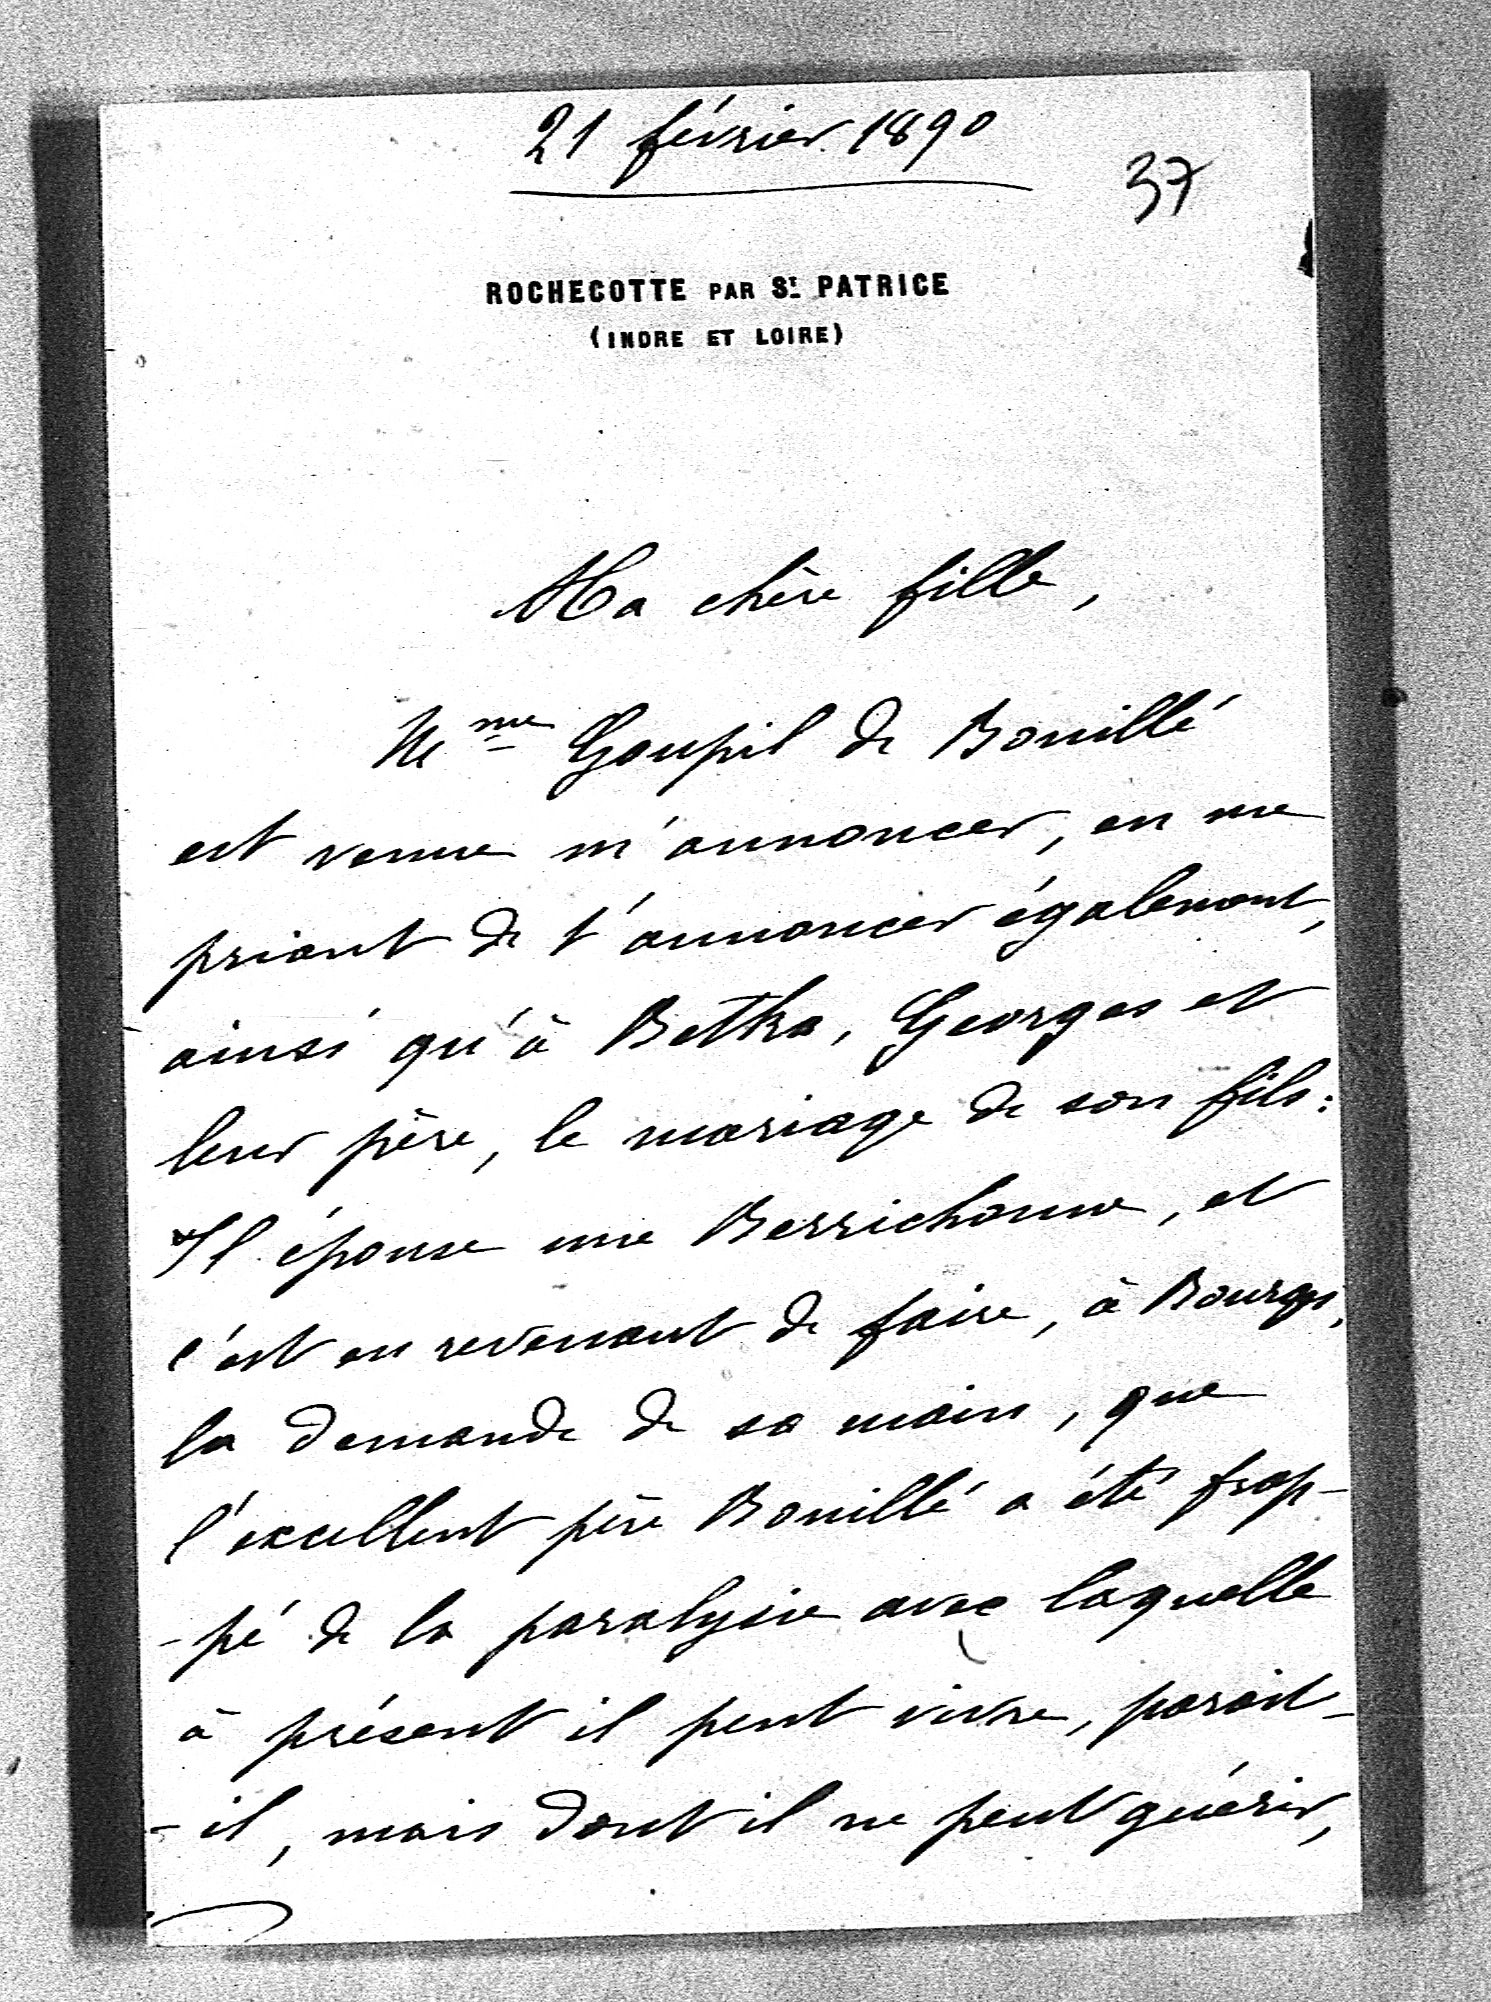 21 février 1890
37
ROCHECOTTE PAR ST PATRICE
(INDRE ET LOIRE)
Ma chère fille,
Mme Goupil de Bouillé
est venue m'annoncer, en me
priant de t'annoncer également,
ainsi qu'à Betka, Georges et
leur père, le mariage de son fils:
Il épouse une Berrichonne, et
c'est en revenant de faire, à Bourges,
la demande de sa main, que
l'excellent père Bouillé a été frap-
-pé de la paralysie avec laquelle
à présent il peut vivre, parait-
-il, mais dont il ne peut guérir,